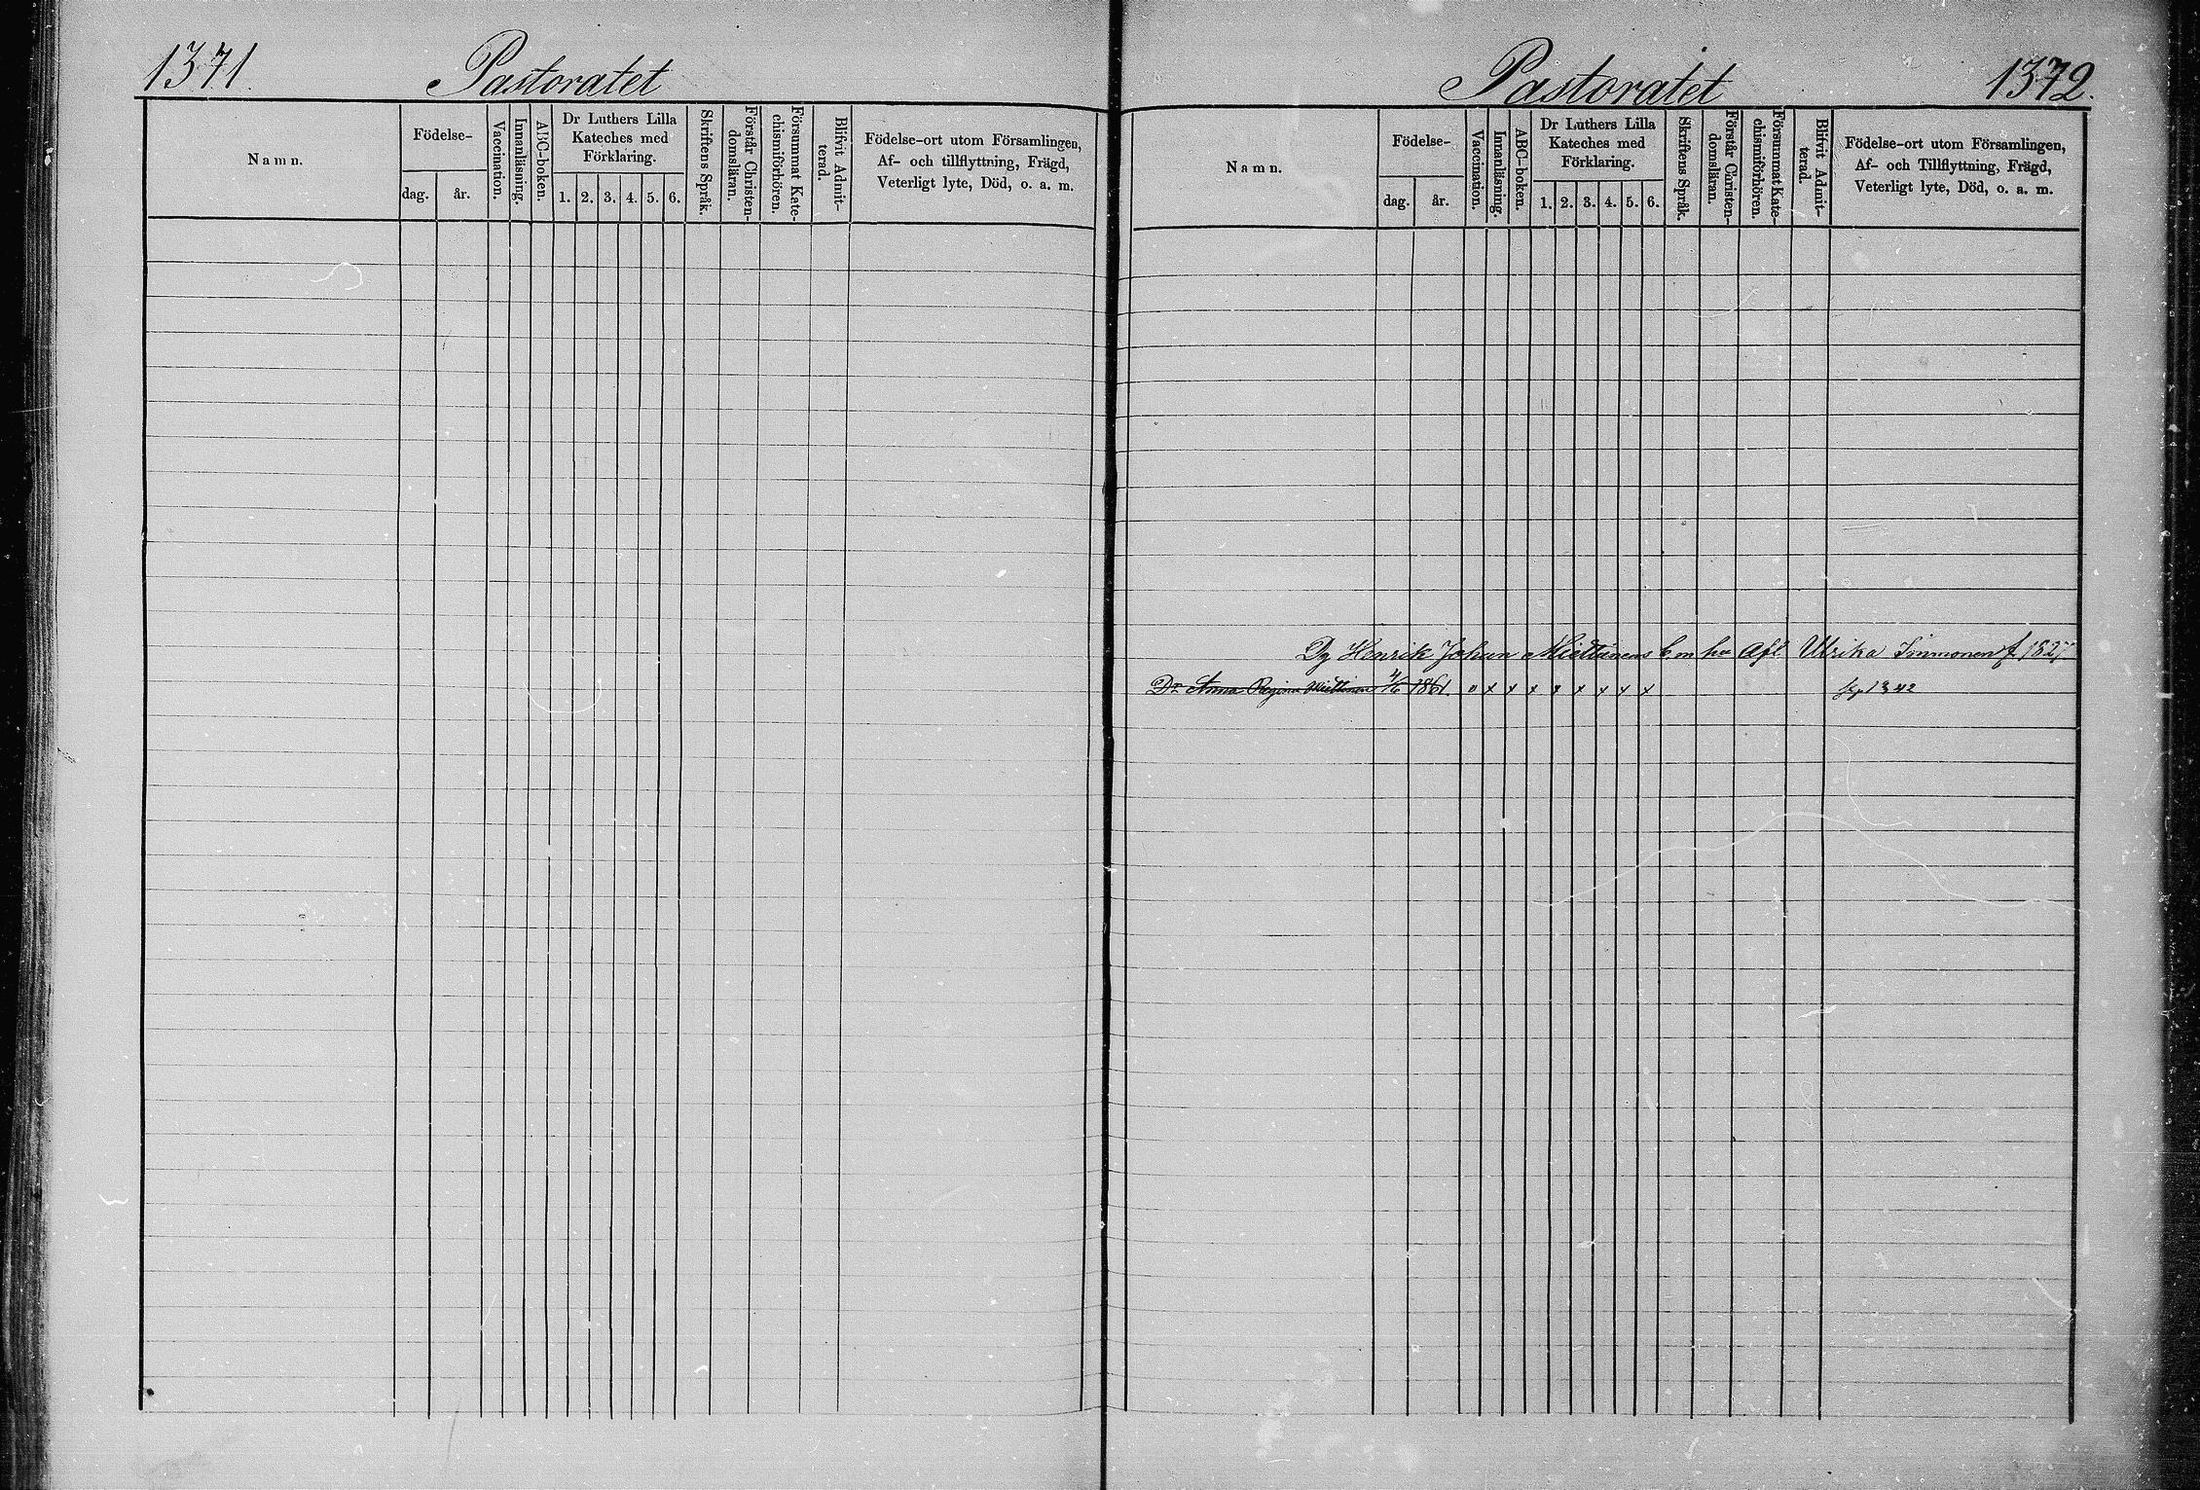 1371.
Pastoratet
Namn.
Födelse-
dag.
år.
Vaccination.
Innanläsning.
ABC-boken.
Dr Luthers Lilla
Kateches med
Förklaring.
1. 2. 3. 4. 5. 6.
Skriftens Språk.
Förstår Christen-
domsläran.
Försummat Kate-
chismiförhören.
Blifvit Admit-
terad.
Födelse-ort utom Församlingen,
Af- och tillflyttning, Frägd,
Veterligt lyte, Död, o. a. m.
Pastoratet
1372.
Namn.
Födelse-
dag.
år.
Vaccination.
Innanläsning.
ABC-boken.
Dr Luthers Lilla
Kateches med
Förklaring.
1. 2. 3. 4. 5. 6.
Skriftens Språk.
Förstår Christen-
domsläran.
Försummat Kate-
chismiförhören.
Blifvit Admit-
terad.
Födelse-ort utom Församlingen,
Af- och Tillflyttning, Frägd,
Veterligt lyte, Död, o. a. m.
Dg Henrik Johan Miettinens Afl Ulrika f 1827.
Dr. Anna Regina Miettinen 4/6 1861. x x x x x x x x 1342